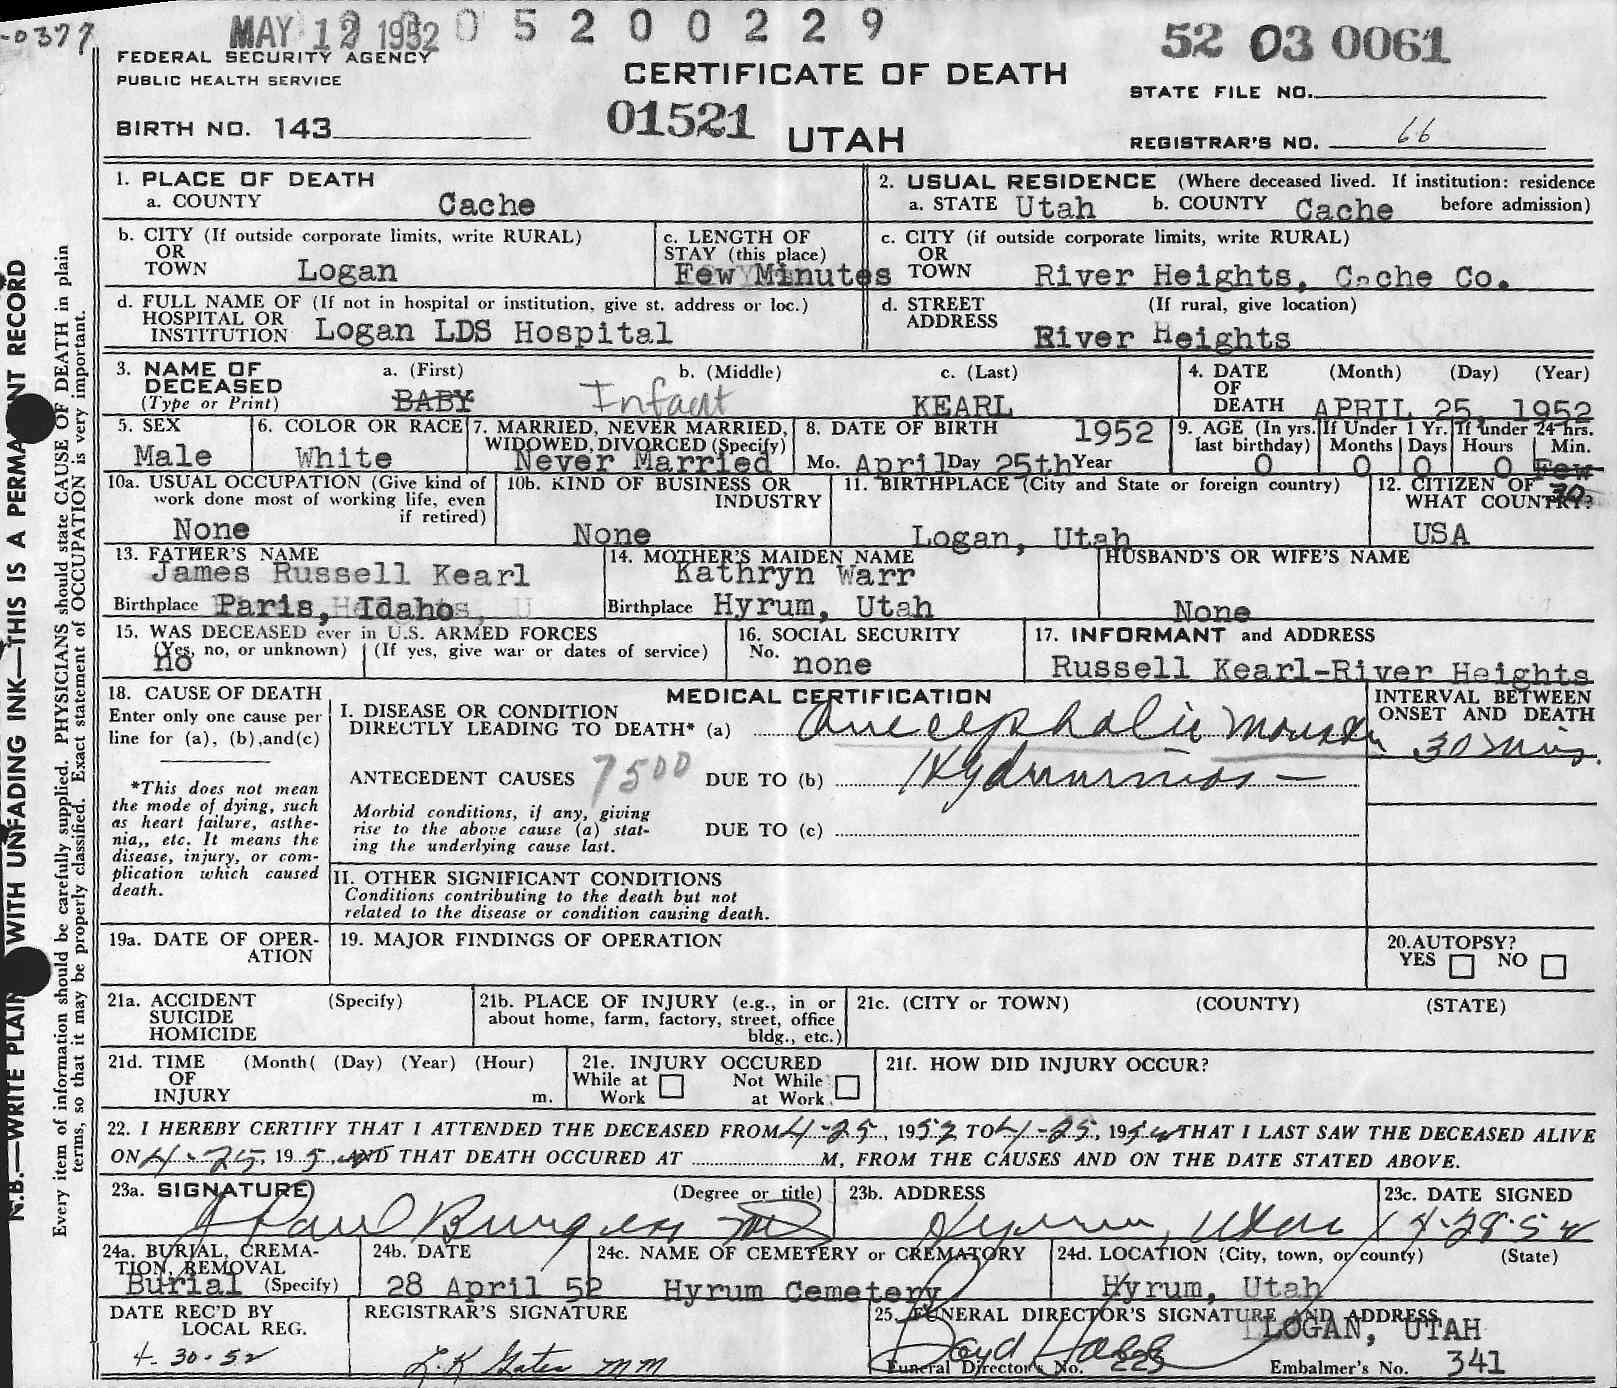 -0377
MAY 12 1952 0 5 2 0 0 2 2 9
52 03 0061
FEDERAL SECURITY AGENCY
PUBLIC HEALTH SERVICE
CERTIFICATE OF DEATH
STATE FILE NO.
BIRTH NO. 143
01521
UTAH
REGISTRAR'S NO. 66
N.B.—WRITE PLAIN WITH UNFADING INK—THIS IS A PERMA NT RECORD
Every item of information should be carefully supplied. PHYSICIANS should state CAUSE OF DEATH in plain
terms, so that it may be properly classified. Exact statement of OCCUPATION is very important.
1. PLACE OF DEATH
a. COUNTY Cache
2. USUAL RESIDENCE (Where deceased lived. If institution: residence
a. STATE Utah b. COUNTY Cache before admission)
b. CITY (If outside corporate limits, write RURAL)
OR
TOWN Logan
c. LENGTH OF
STAY (this place)
Few Minutes
c. CITY (if outside corporate limits, write RURAL)
OR
TOWN River Heights, Cache Co.
d. FULL NAME OF (If not in hospital or institution, give st. address or loc.)
HOSPITAL OR
INSTITUTION Logan LDS Hospital
d. STREET (If rural, give location)
ADDRESS
River Heights
3. NAME OF a. (First) b. (Middle) c. (Last)
DECEASED
(Type or Print) BABY Infant KEARL
4. DATE (Month) (Day) (Year)
OF
DEATH APRIL 25, 1952
5. SEX
Male
6. COLOR OR RACE
White
7. MARRIED, NEVER MARRIED,
WIDOWED, DIVORCED (Specify)
Never Married
8. DATE OF BIRTH 1952
Mo. April Day 25th Year
9. AGE (In yrs. If Under 1 Yr. If under 24 hrs.
last birthday) Months Days Hours Min.
0 0 0 0 Few
30
10a. USUAL OCCUPATION (Give kind of
work done most of working life, even
if retired)
None
10b. KIND OF BUSINESS OR
INDUSTRY
None
11. BIRTHPLACE (City and State or foreign country)
Logan, Utah
12. CITIZEN OF
WHAT COUNTRY?
USA
13. FATHER'S NAME
James Russell Kearl
Birthplace Paris, Idaho
14. MOTHER'S MAIDEN NAME
Kathryn Warr
Birthplace Hyrum, Utah
HUSBAND'S OR WIFE'S NAME
None
15. WAS DECEASED ever in U.S. ARMED FORCES
(Yes, no, or unknown) (If yes, give war or dates of service)
no
16. SOCIAL SECURITY
No. none
17. INFORMANT and ADDRESS
Russell Kearl-River Heights
18. CAUSE OF DEATH
Enter only one cause per
line for (a), (b), and (c)
*This does not mean
the mode of dying, such
as heart failure, asthe-
nia,, etc. It means the
disease, injury, or com-
plication which caused
death.
MEDICAL CERTIFICATION
I. DISEASE OR CONDITION
DIRECTLY LEADING TO DEATH* (a) Anecephalic
INTERVAL BETWEEN
ONSET AND DEATH
30 mins.
ANTECEDENT CAUSES 7500 DUE TO (b)
Morbid conditions, if any, giving
rise to the above cause (a) stat-
ing the underlying cause last.
DUE TO (c)
II. OTHER SIGNIFICANT CONDITIONS
Conditions contributing to the death but not
related to the disease or condition causing death.
19a. DATE OF OPER-
ATION
19. MAJOR FINDINGS OF OPERATION
20. AUTOPSY?
YES NO
21a. ACCIDENT (Specify)
SUICIDE
HOMICIDE
21b. PLACE OF INJURY (e.g., in or
about home, farm, factory, street, office
bldg., etc.)
21c. (CITY or TOWN) (COUNTY) (STATE)
21d. TIME (Month( (Day) (Year) (Hour)
OF
INJURY m.
21e. INJURY OCCURED
While at Not While
Work at Work
21f. HOW DID INJURY OCCUR?
22. I HEREBY CERTIFY THAT I ATTENDED THE DECEASED FROM 4-25, 1952 TO 4-25, 1952 THAT I LAST SAW THE DECEASED ALIVE
ON 4-25, 1952 AND THAT DEATH OCCURED AT M, FROM THE CAUSES AND ON THE DATE STATED ABOVE.
23a. SIGNATURE (Degree or title)
Paul Burgess MD
23b. ADDRESS
Hyrum, Utah
23c. DATE SIGNED
4-28-52
24a. BURIAL, CREMA-
TION, REMOVAL
Burial (Specify)
24b. DATE
28 April 52
24c. NAME OF CEMETERY or CREMATORY
Hyrum Cemetery
24d. LOCATION (City, town, or county) (State)
Hyrum, Utah
DATE REC'D BY
LOCAL REG.
4-30-52
REGISTRAR'S SIGNATURE
25. FUNERAL DIRECTOR'S SIGNATURE AND ADDRESS
LOGAN, UTAH
Funeral Director's No. 223 Embalmer's No. 341